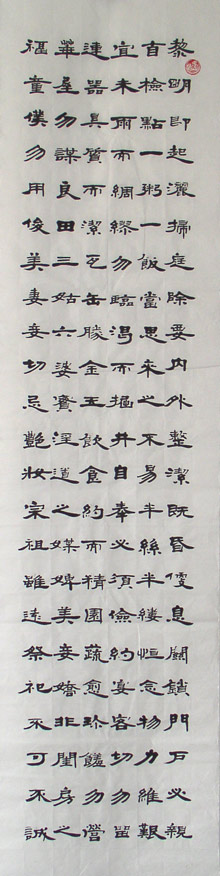 黎明即起灑掃庭除要內外整潔既昏便息關鎖門戶必親
自檢點一粥一飯當思來之不易半絲半縷恒念物力維艱
宜未雨而綢繆勿臨渴而掘井自奉必須儉約宴客切勿留
連器具質而潔瓦缶勝金玉飲食約而精園蔬愈珍饈勿營
華屋勿謀良田三姑六婆實淫盜之媒婢美妾嬌非閨房之
福童僕勿用俊美妻妾切忌艷妝宗祖雖遠祭祀不可不誠